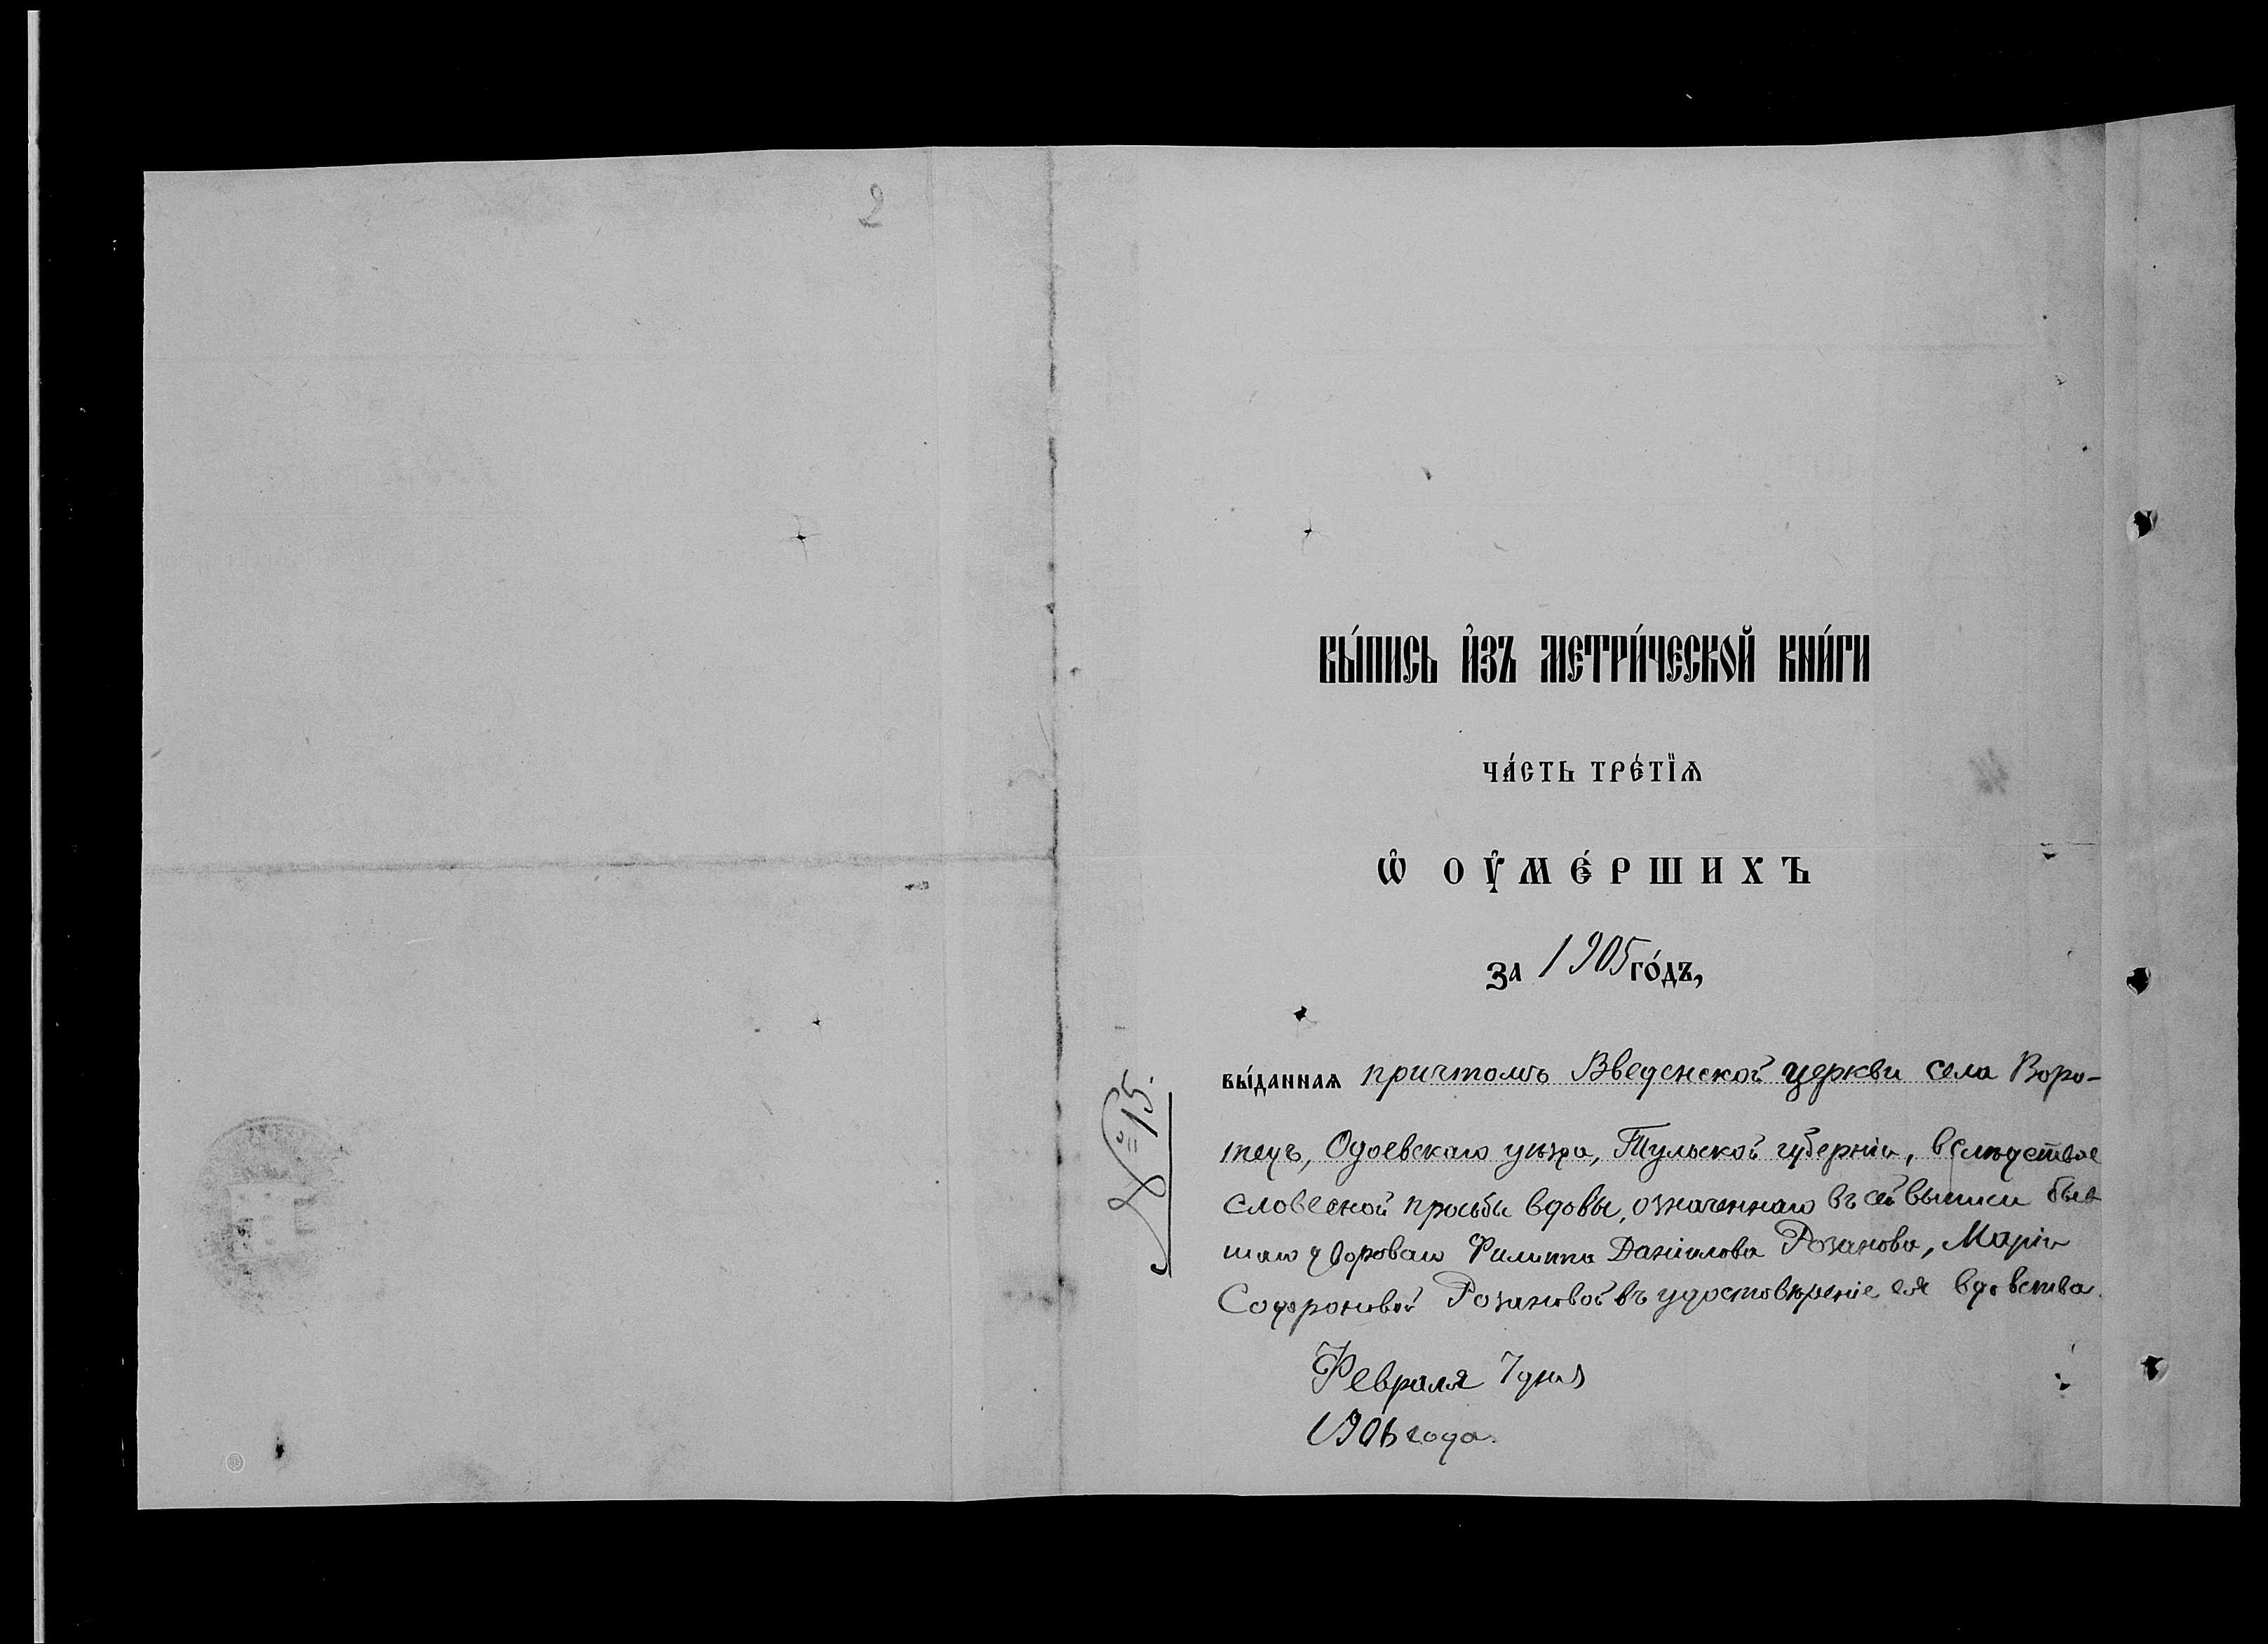 2
ВЫ́ПИСЬ И҆ЗЪ МЕТРИ́ЧЕСКОЙ КНИ́ГИ
ЧА́СТЬ ТРЕ́ТЇѦ
Ѡ҆ ОУ҆МЕ́РШИХЪ
ЗА 1905 ГО́ДЪ,
№ 15.
ВЫ́ДАННАѦ причтомъ Введенской церкви села Воро-
тецъ, Одоевскаго уѣзда, Тульской губерніи, вслѣдствіе
словесной просьбы вдовы, означеннаго въ сей выписи быв
шаго двороваго Филиппа Даніилова Розанова, Маріи
Софроновой Розановой въ удостовѣреніе ея вдовства.
Февраля 7 дня
1906 года.